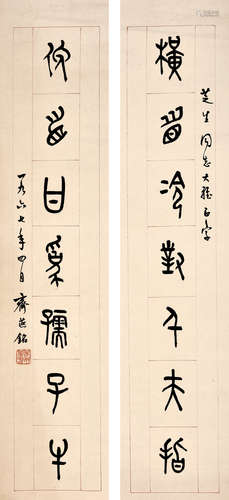 芝生同志大雅正字
橫眉冷對千夫指
俯首甘為孺子牛
一九六七年四月 齊燕銘